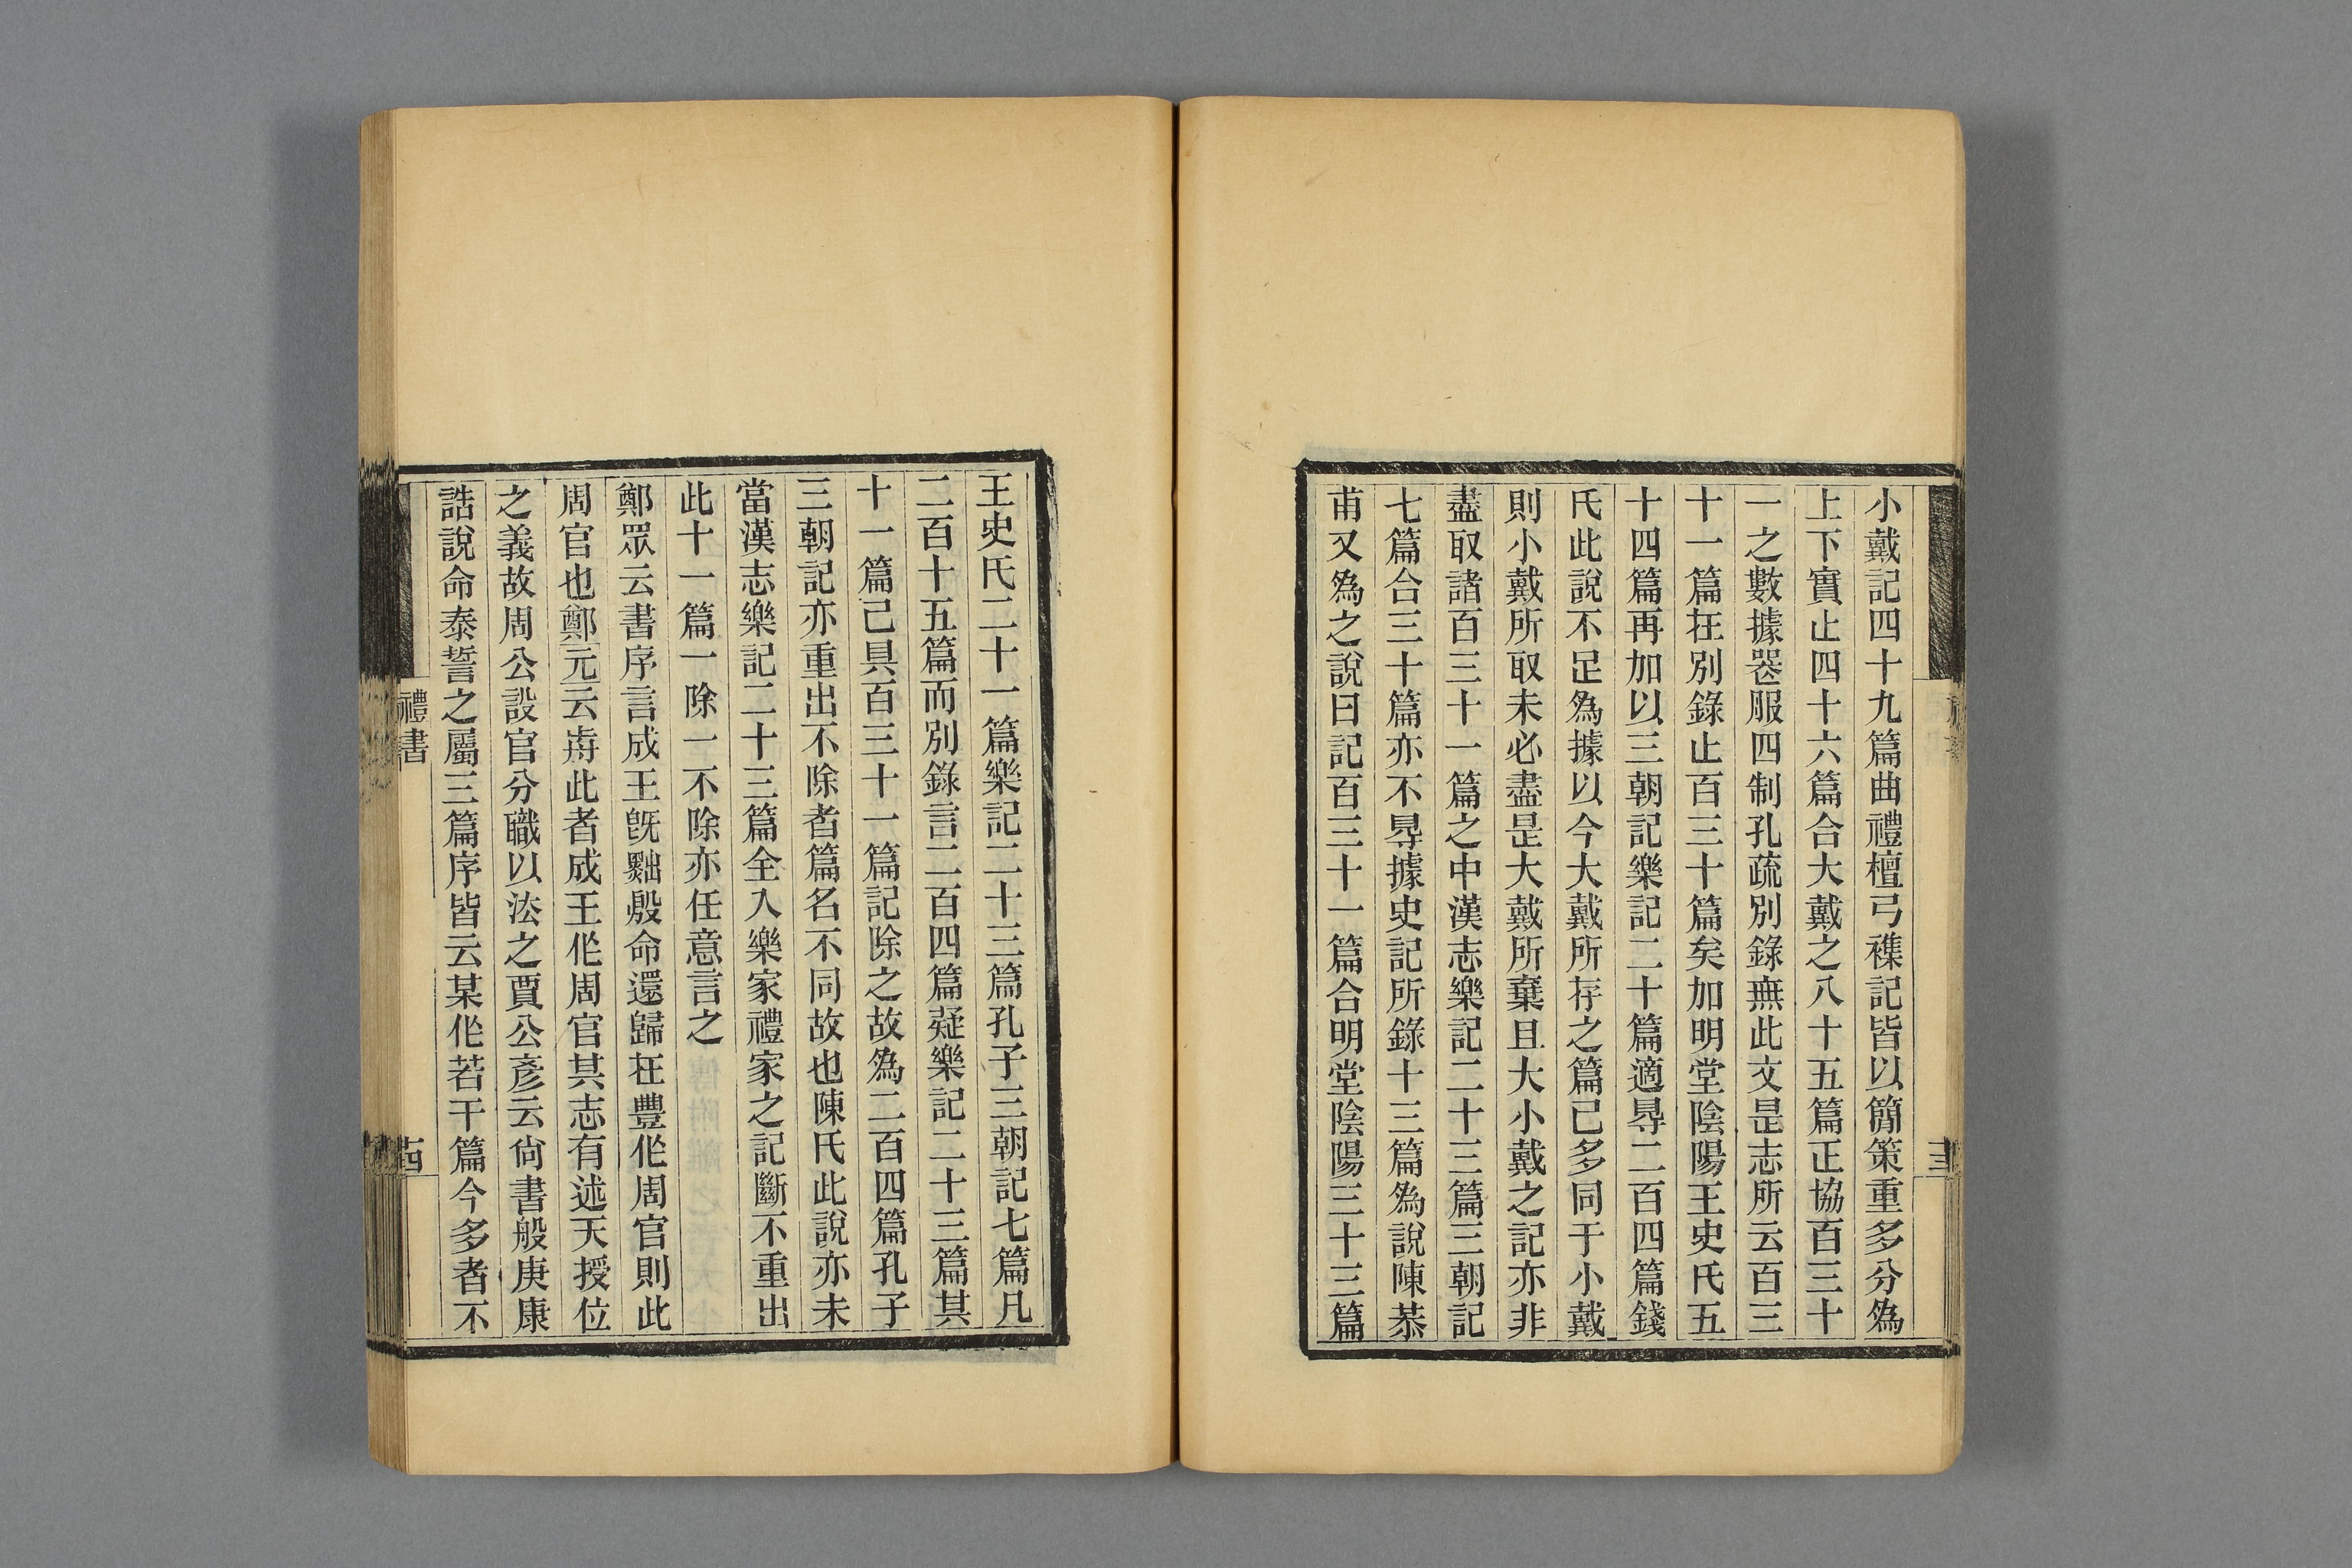 小戴記四十九篇曲禮檀弓襍記皆以簡策重多分爲
上下實止四十六篇合大戴之八十五篇正協百三十
一之數據器服四制孔疏別錄無此文是志所云百三
十一篇在別錄止百三十篇矣加明堂陰陽王史氏五
十四篇再加以三朝記樂記二十篇適㝵二百四篇錢
氏此說不足爲據以今大戴所存之篇已多同于小戴
則小戴所取未必盡是大戴所棄且大小戴之記亦非
盡取諸百三十一篇之中漢志樂記二十三篇三朝記
七篇合三十篇亦不㝵據史記所錄十三篇爲說陳恭
甫又爲之說曰記百三十一篇合明堂陰陽三十三篇
王史氏二十一篇樂記二十三篇孔子三朝記七篇凡
二百十五篇而別錄言二百四篇疑樂記二十三篇其
十一篇已具百三十一篇記除之故爲二百四篇孔子
三朝記亦重出不除者篇名不同故也陳氏此說亦未
當漢志樂記二十三篇全入樂家禮家之記斷不重出
此十一篇一除一不除亦任意言之
鄭眾云書序言成王旣黜殷命還歸在豐作周官則此
周官也鄭元云歬此者成王作周官其志有述天授位
之義故周公設官分職以法之賈公彥云尙書般庚康
誥說命泰誓之屬三篇序皆云某作若干篇今多者不
禮書
十四